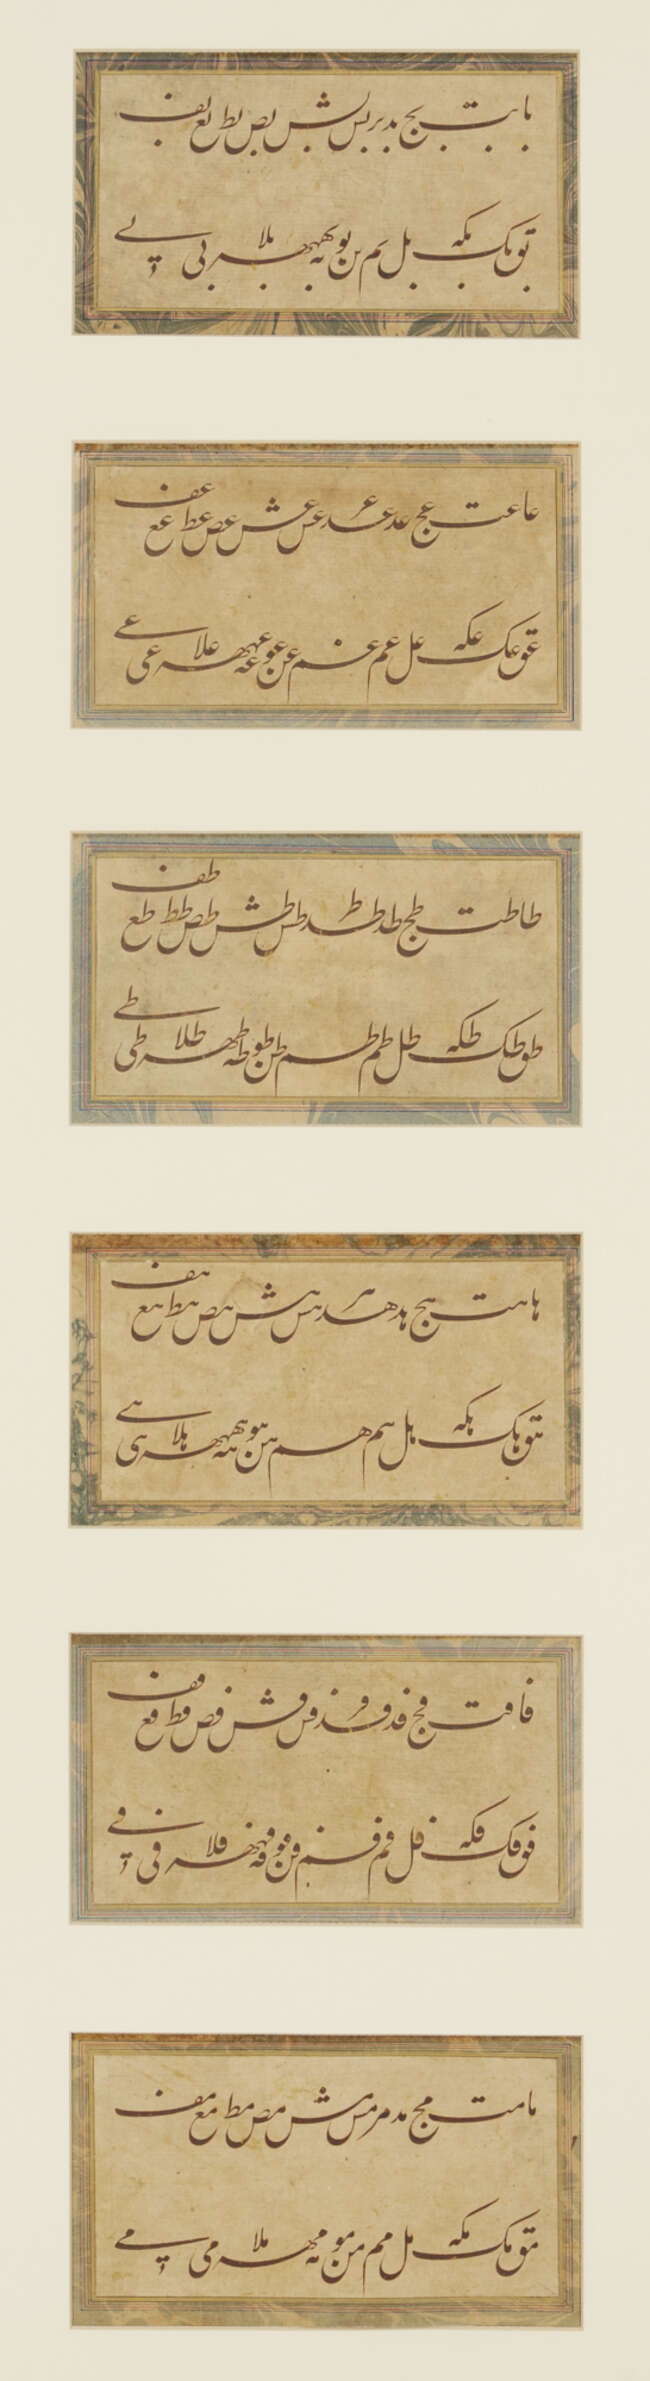 با بت بج بد بر بس بش بص بط بع بف
بق بک بکه بل بم بن بو به بهہ بهر بلا بی بے
عا عت عج عد عر عس عش عص عط عع عف
عق عک عکه عل عم عم عن عو عه علا عی عے
طا طت طج طد طر طس طش طص طط طع طف
طق طک طکه طل طم طم طن طو طه طلا طی طے
ها هت هج هد هر هس هش هص هط هع هف
هق هک هکه هل هم هم هن هو هه هلا هی هے
فا فت فج فد فر فس فش فص فط فع فف
فق فک فکه فل فم فم فن فو فه فلا فی فے
ما مت مج مد مر مس مش مص مط مع مف
مق مک مکه مل مم من مو مه ملا می مے